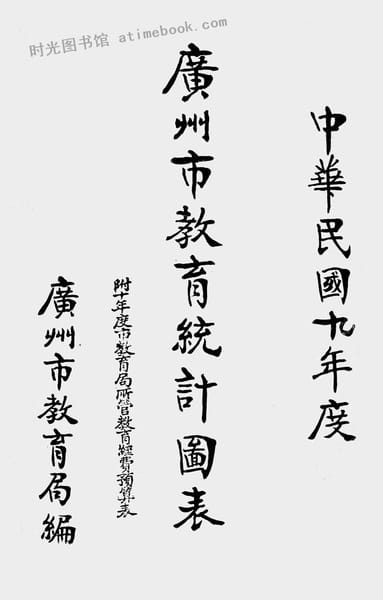 时光图书馆 atimebook.com
中華民國九年度
廣州市教育統計圖表
附十年度市教育局所管教育經費預算表
廣州市教育局編